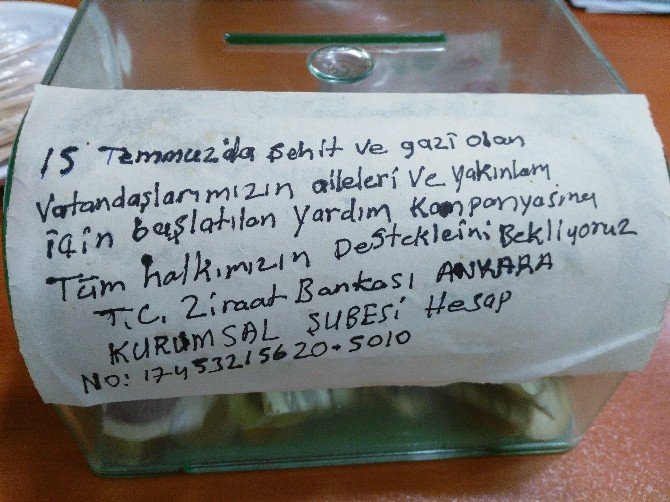 15 Temmuz'da şehit ve gazi olan
Vatandaşlarımızın aileleri ve yakınları
için başlatılan yardım kampanyasına
Tüm halkımızın Destekleini Bekliyoruz
T.C. Ziraat Bankası ANKARA
KURUMSAL ŞUBESİ Hesap
NO: 17453215620-5010